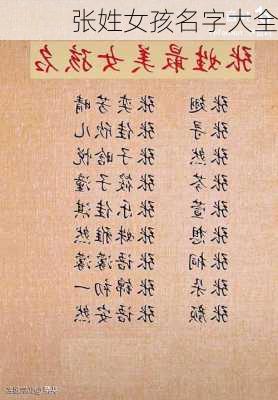 张姓女孩名字大全
张姓最美女孩名
张翅 张奕芳晴
张寻 张佳欣儿
张然 张子晗悦
张芩 张筱子潼
张萱 张乐佳淇
张想 张姝雅然
张桐 张语濛濛
张朵 张锦初一
张颜 张语安然